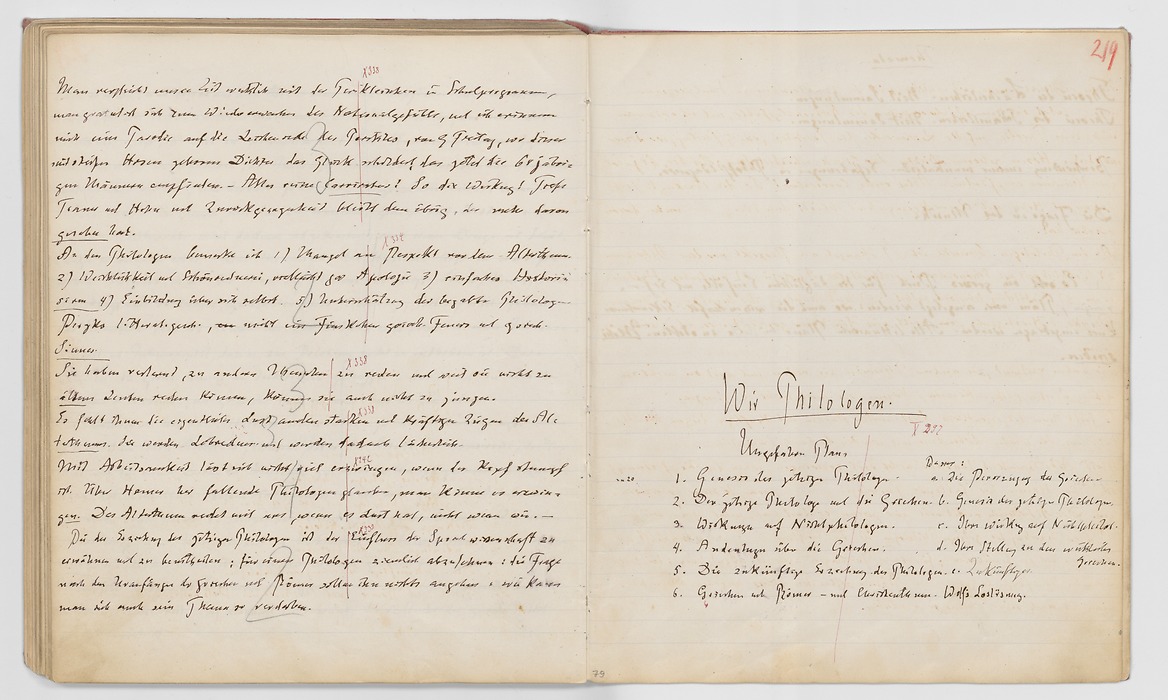 Man vergleicht unsere Zeit wirklich mit der Perikleischen in Schulprogrammen,
man gratulirt sich zum Wiedererwachen des Nationalgefühls, und ich erinnere
mich einer Parodie auf die Leichenrede des Perikles, von G Freitag, wo dieser
Hosen geborene Dichter das Glück schildert, das jetzt die 60 jähri-
gen Männer empfinden. – Alles reine Carricatur! So die Wirkung! Tiefe
Trauer und Hohn und Zurückgezogenheit bleibt dem übrig, der mehr davon
gesehen hat.
An den Philologen bemerke ich 1) Mangel an Respekt vor dem Alterthum
2) Weichlichkeit und Schönrednerei, vielleicht gar Apologie 3) einfaches Histori-
siren 4) Einbildung über sich selbst 5) Unterschätzung der begabten Philologen
Sie haben verlernt, zu andern Menschen zu reden und weil sie nicht zu
ältern Leuten reden können, können sie auch nicht zu jungen.
Es fehlt ihnen die eigentliche Lust an den starken und kräftigen Zügen des Al-
terthums. Sie werden Lobredner und werden dadurch lächerlich.
Mit Arbeitsamkeit lässt sich nicht viel erzwingen, wenn der Kopf stumpf
ist. Über Homer her fallende Philologen glauben, man könne es erzwin-
gen. Das Alterthum redet mit uns, wenn es Lust hat, nicht wenn wir. –
Bei der Erziehung des jetzigen Philologen ist der Einfluss der Sprachwissenschaft zu
erwähnen und zu beurtheilen; für einen Philologen ziemlich abzulehnen: die Frage
nach den Uranfängen der Griechen und Römer sollen ihn nichts angehen: wie kann
man sich auch sein Thema so verderben.
219
Wir Philologen.
Ungefährer Plan.
1. Genesis des jetzigen Philologen.
2. Der jetzige Philologe und die Griechen.
3. Wirkungen auf Nichtphilologen.
4. Andeutungen über die Griechen.
5. Die zukünftige Erziehung des Philologen.
6. Griechen und Römer – und Christenthum. Wolfs Loslösung.
Besser:
a. Die Bevorzugung der Griechen
b. Genesis der jetzigen Philologen.
c. Ihre Wirkung auf Nichtphilol.
d. Ihre Stellung zu den wirklichen
Griechen.
e. Zukünftiges.
79